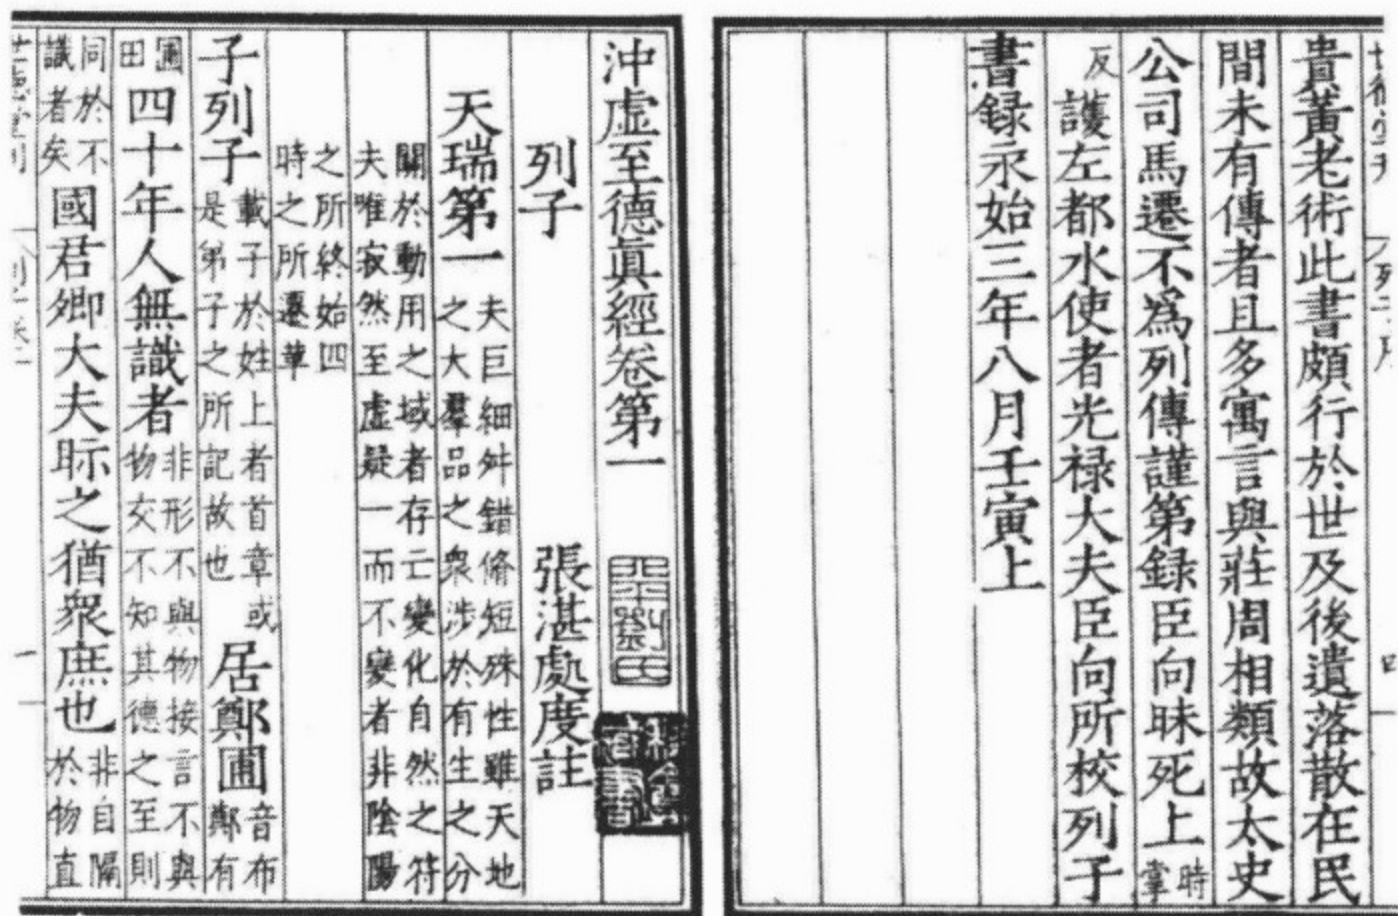 貴黃老術此書頗行於世及後遺落散在民
間未有傳者且多寓言與莊周相類故太史
公司馬遷不為列傳謹第録臣向昧死上時掌
反護左都水使者光禄大夫臣向所校列子
書録永始三年八月壬寅上
沖虛至德眞經卷第一
列子 張湛處度註
天瑞第一夫巨細舛錯脩短殊性雖天地之大羣品之衆涉於有生之分
關於動用之域者存亡變化自然之符夫唯寂然至虛凝一而不變者非陰陽
之所終始四時之所遷革
子列子載子於姓上者首章或是弟子之所記故也居鄭圃音布鄭有
圃田四十年人無識者非形不與物接言不與物交不知其德之至則
同於不識者矣國君卿大夫眎之猶衆庶也非自隔於物直